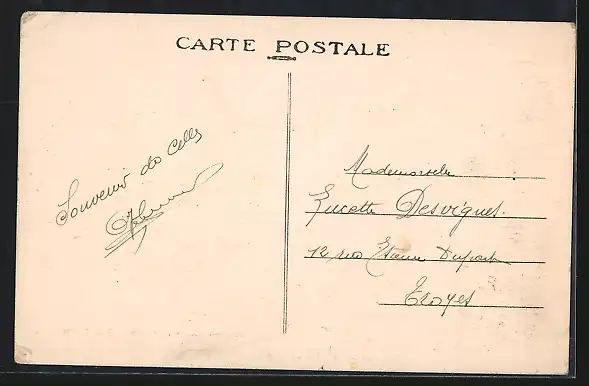 CARTE POSTALE
Souvenir de Celles
Mademoiselle
Lucette Desvignes.
12 rue Etienne Dupont
Troyes